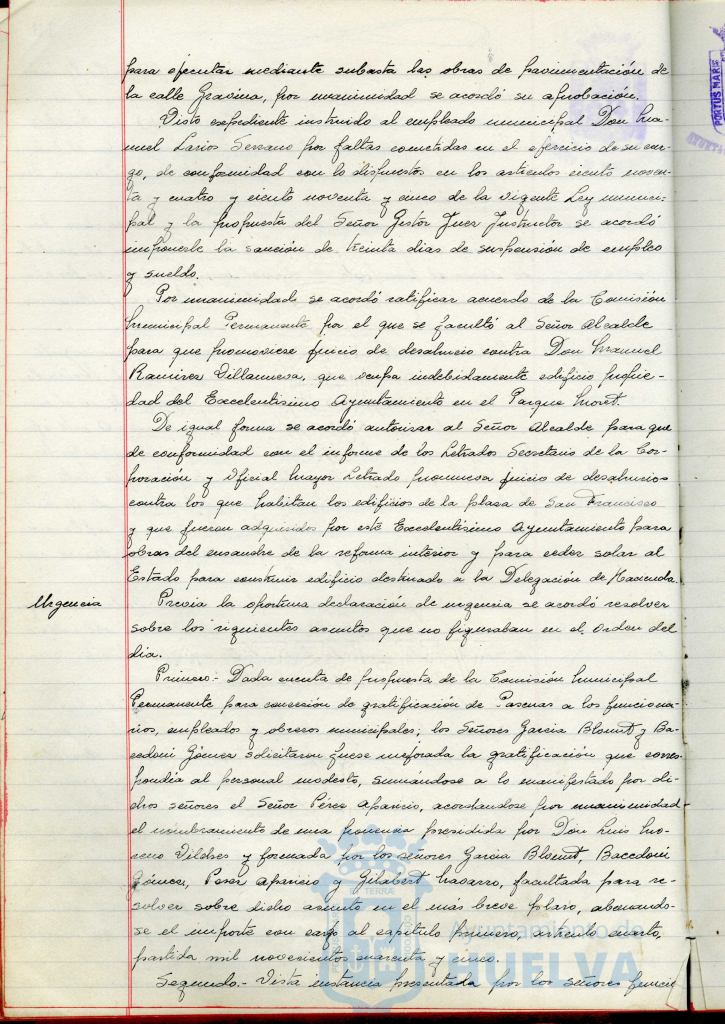 para ejecutar mediante subasta las obras de pavimentación de
la calle Gravina, por unanimidad se acordó su aprobación.
Visto expediente instruido al empleado municipal Don Ma-
nuel Larios Serrano por faltas cometidas en el ejercicio de su car-
go, de conformidad con lo dispuestos en los artículos ciento noven-
ta y cuatro y ciento noventa y cinco de la vigente Ley munici-
pal y la propuesta del Señor Gestor Juez Instructor se acordó
imponerle la sanción de treinta dias de suspensión de empleo
y sueldo.
Por unanimidad se acordó ratificar acuerdo de la Comisión
Municipal Permanente por el que se facultó al Señor Alcalde
para que promoviese juicio de desahucio contra Don Manuel
Ramirez Villanueva, que ocupa indebidamente edificio propie-
dad del Excelentisimo Ayuntamiento en el Parque Moret.
De igual forma se acordó autorizar al Señor Alcalde para que
de conformidad con el informe de los Letrados Secretario de la Cor-
poración y Oficial Mayor Letrado promueva juicio de desahucios
contra los que habitan los edificios de la plaza de San Francisco
y que fueron adquiridos por este Excelentísimo Ayuntamiento para
obras del ensanche de la reforma interior y para ceder solar al
Estado para construir edificio destinado a la Delegación de Hacienda.
Urgencia
Previa la oportuna declaración de urgencia se acordó resolver
sobre los siguientes asuntos que no figuraban en el Orden del
dia.
Primero.- Dada cuenta de propuesta de la Comisión Municipal
Permanente para concesión de gratificación de Pascuas a los funciona-
rios, empleados y obreros municipales; los Señores Garcia Blomt y Ba-
cedoni Gómez solicitaron fuese mejorada la gratificación que corres-
pondía al personal modesto, sumándose a lo manifestado por di-
chos señores el Señor Pérez Aparicio, acordandose por unanimidad
el nombramiento de una ponencia presidida por Don Luis Mo-
reno Vilches y formada por los señores Garcia Blomt, Bacedoni
Gómez, Perez Aparicio y Gilabert Navarro, facultada para re-
solver sobre dicho asunto en el más breve plazo, abonando-
se el importe con cargo al capítulo primero, artículo cuarto,
partida mil novecientos cuarenta y cinco.
Segundo.- Vista instancia presentada por los señores funcio
PORTUS MARIS
TERRA
Ayuntamiento de
HUELVA